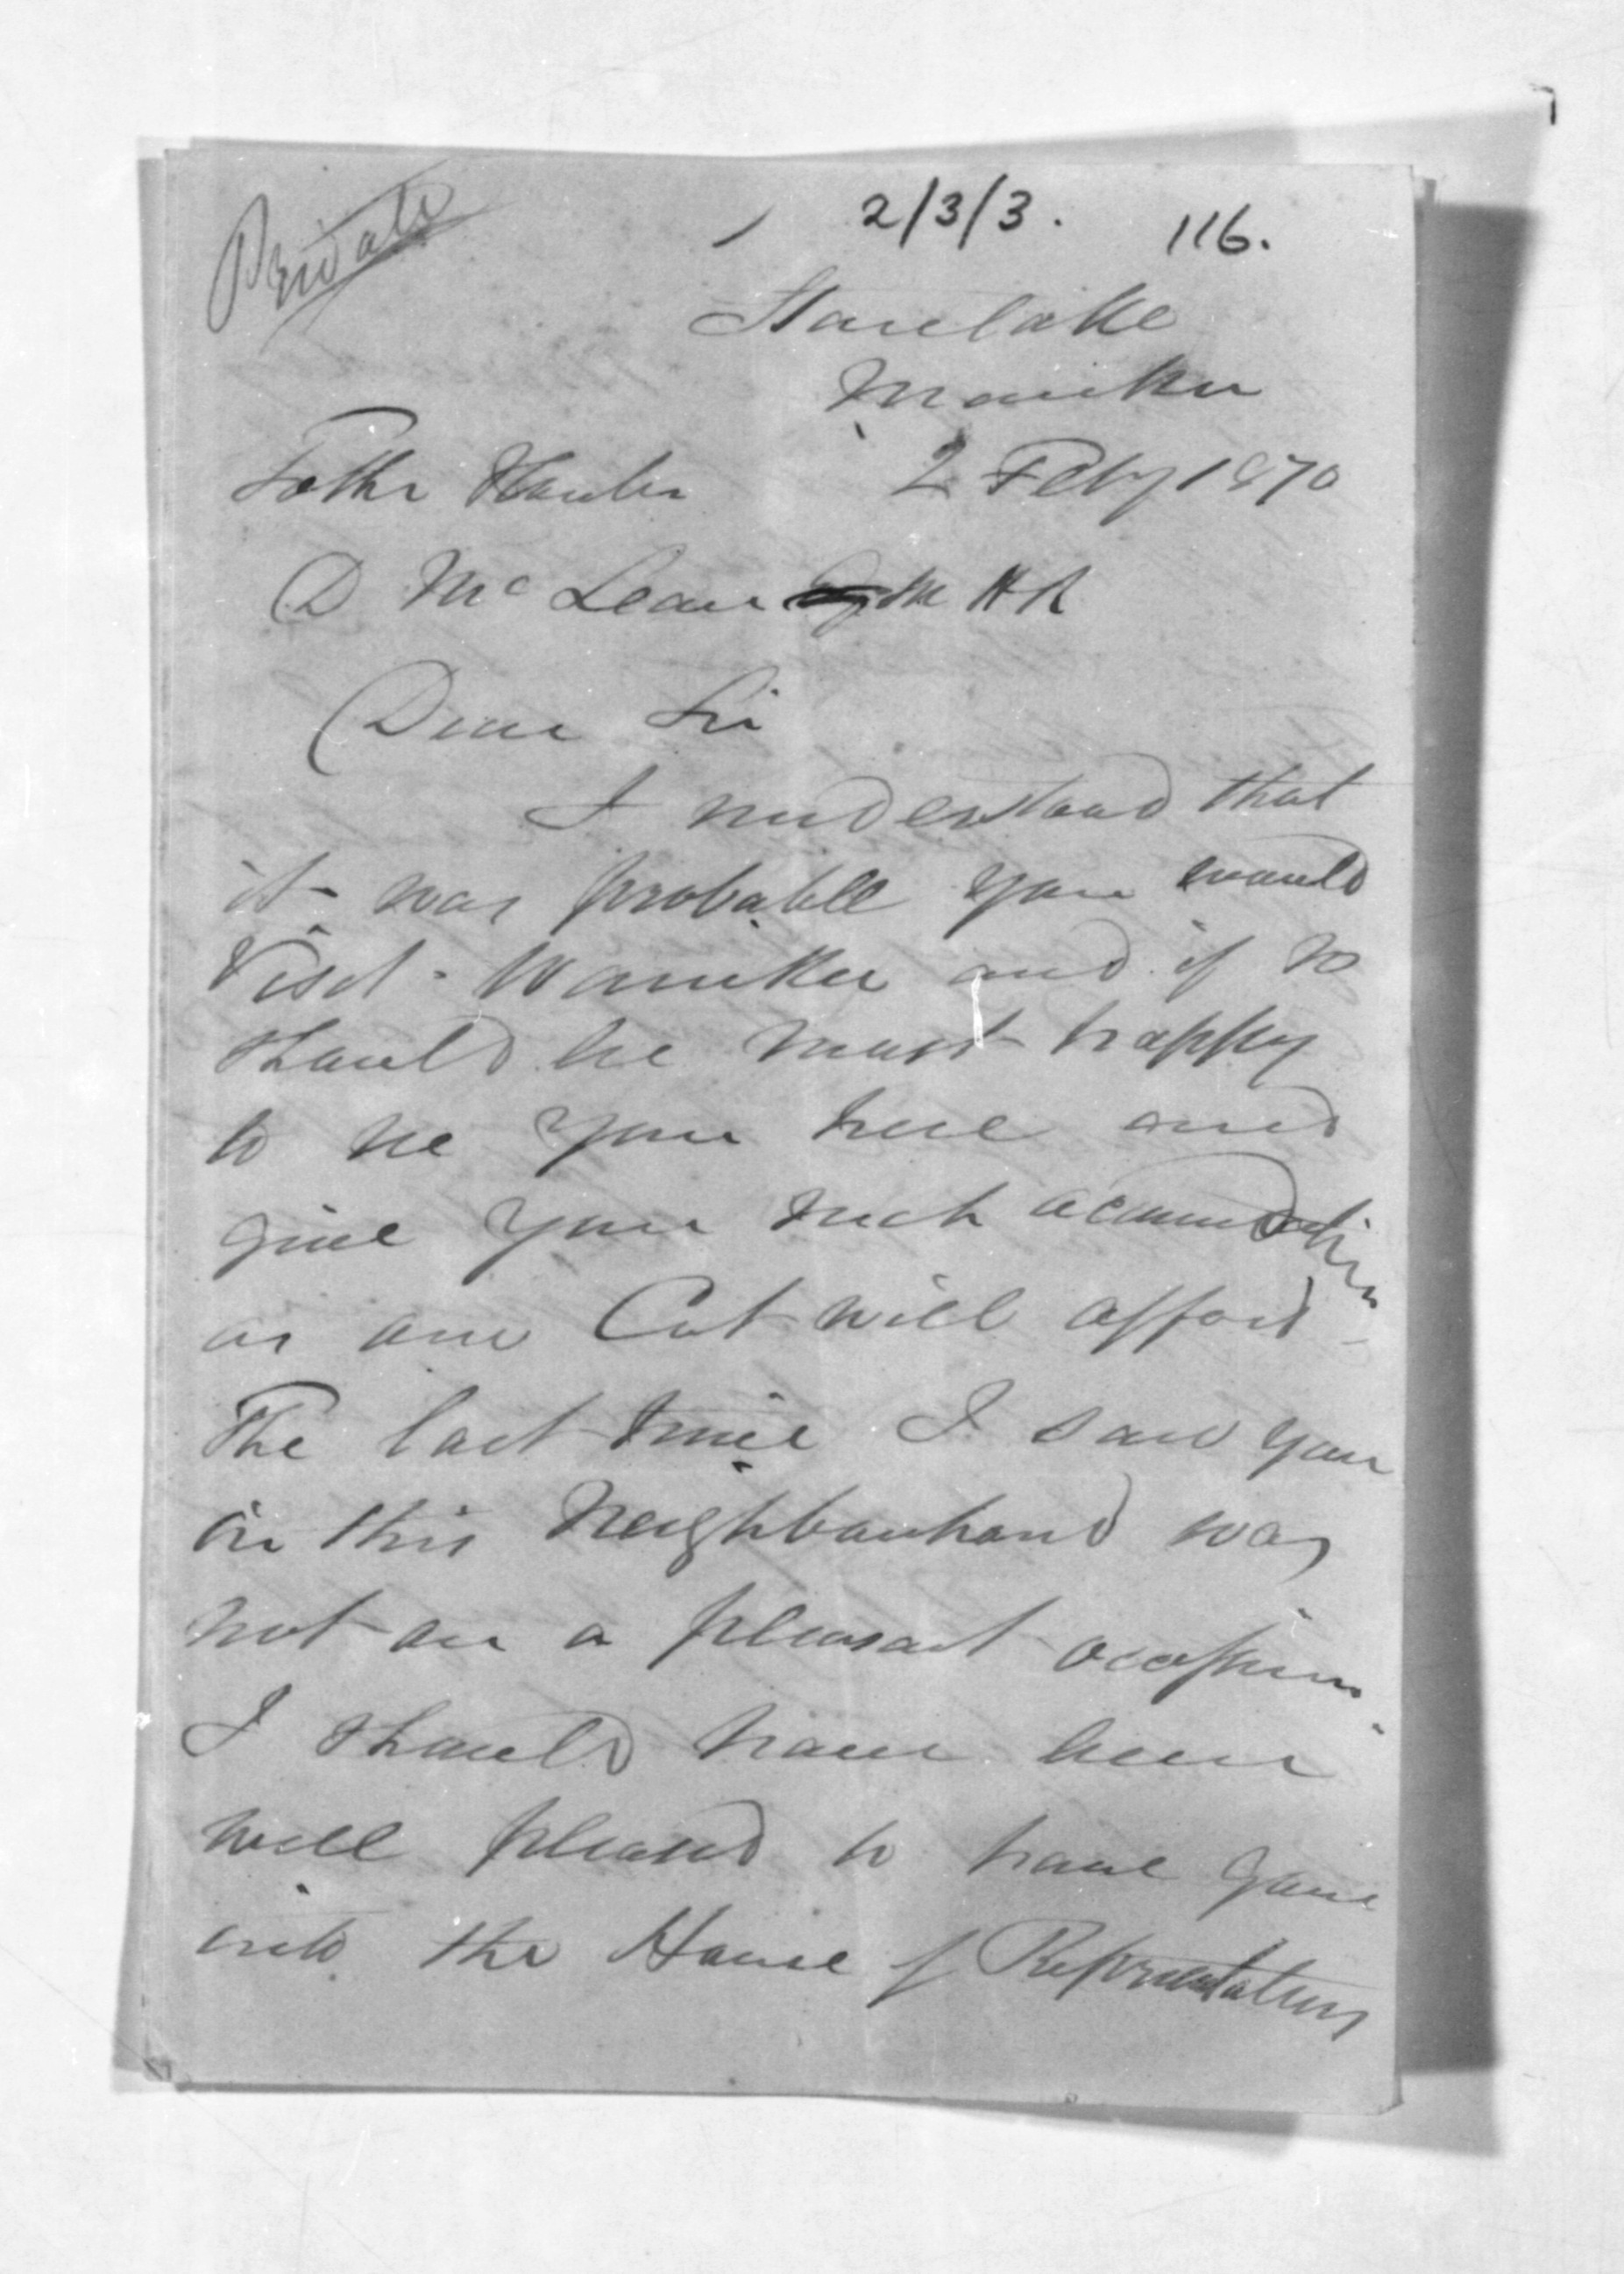 Private
2/3/3. 116.
Harelake
Mauku
2 Feby 1870
To the Honble
D McLean MHR
Dear Sir
I understand that
it was probable you would
visit Mauku and if so
should be most happy
to see you here and
give you such accomodation
as our Cot will afford -
The last time I saw you
in this Neighbourhood was
not on a pleasant occasion.
I should have been
well pleased to have gone
into the House of Representatives